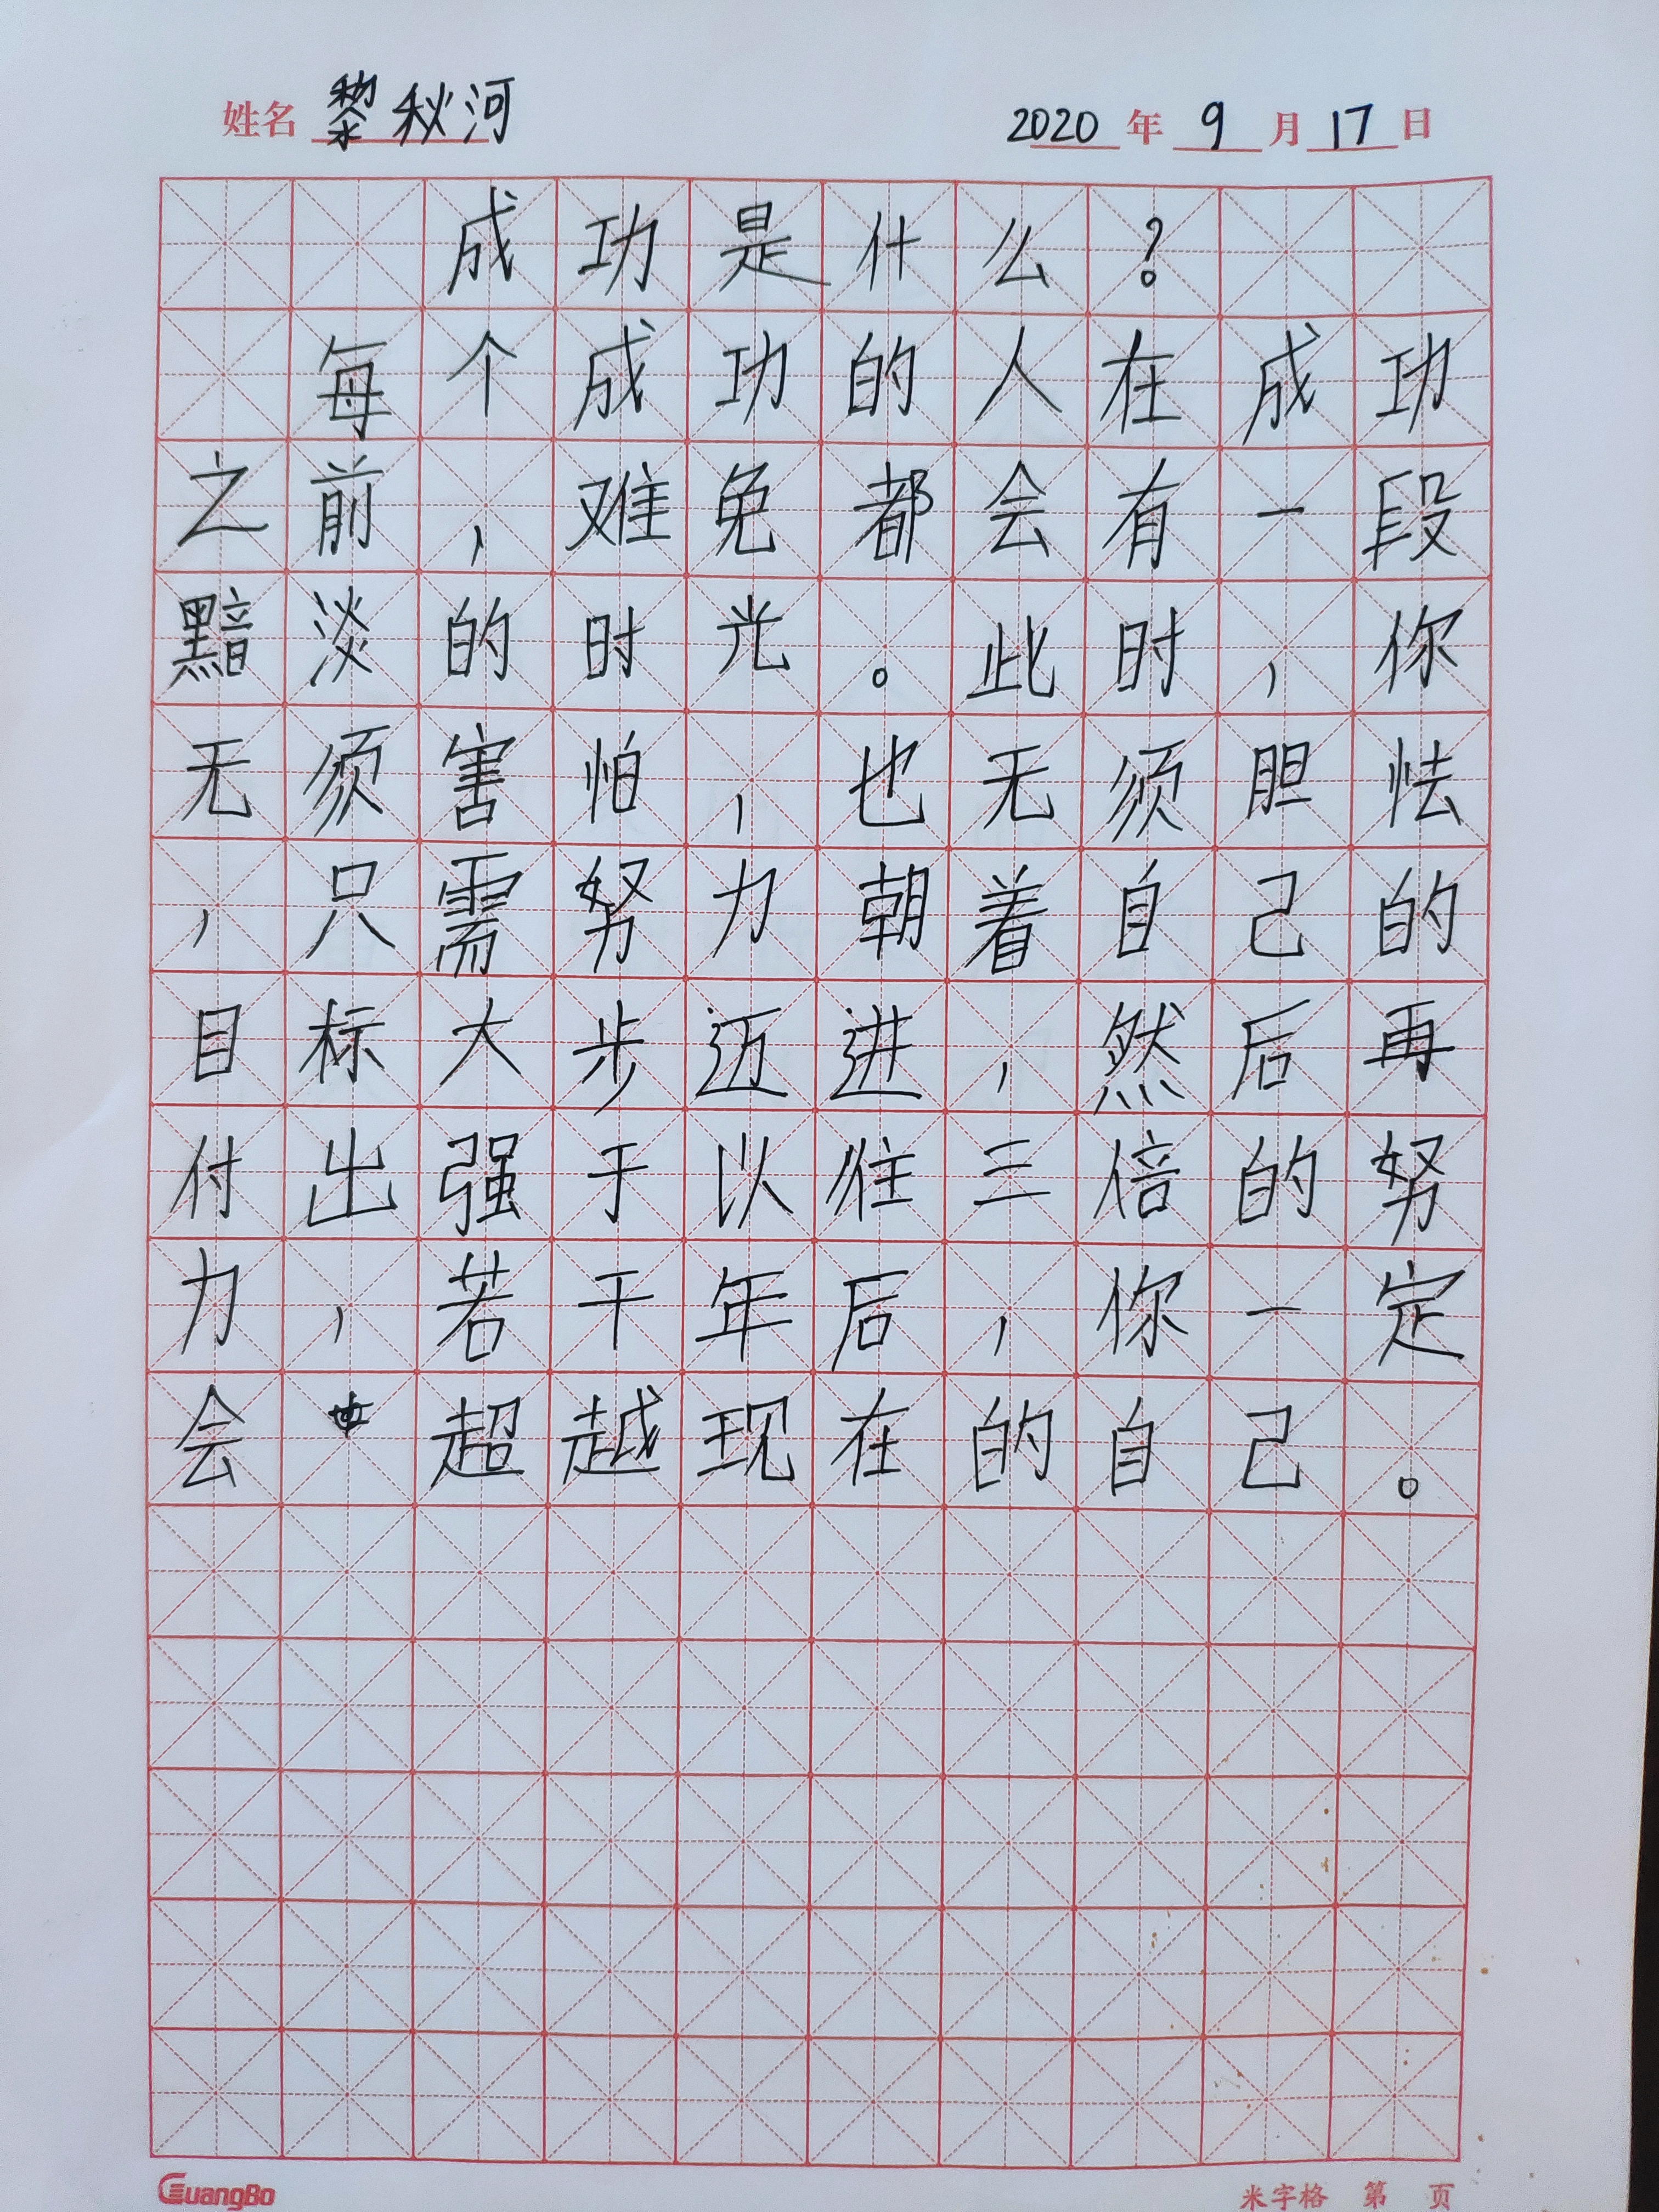 姓名 黎秋河 2020 年 9 月 17 日
成功是什么？
每个成功的人在成功
之前，难免都会有一段
黯淡的时光。此时，你
无须害怕，也无须胆怯
，只需努力朝着自己的
目标大步迈进，然后再
付出强于以往三倍的努
力，若干年后，你一定
会超越现在的自己。
GuangBo 米字格 第 页